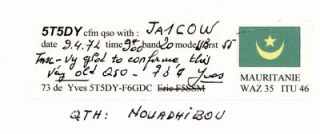 5T5DY cfm qso with: JA1COW
date 9.4.72 time band 20 mode rst 55
Tnx - Vy glad to confirme this
Very old QSO. - 73's Yves
73 de Yves 5T5DY-F6GDC Eric F5SSM
MAURITANIE
WAZ 35 ITU 46
QTH: NOUADHIBOU